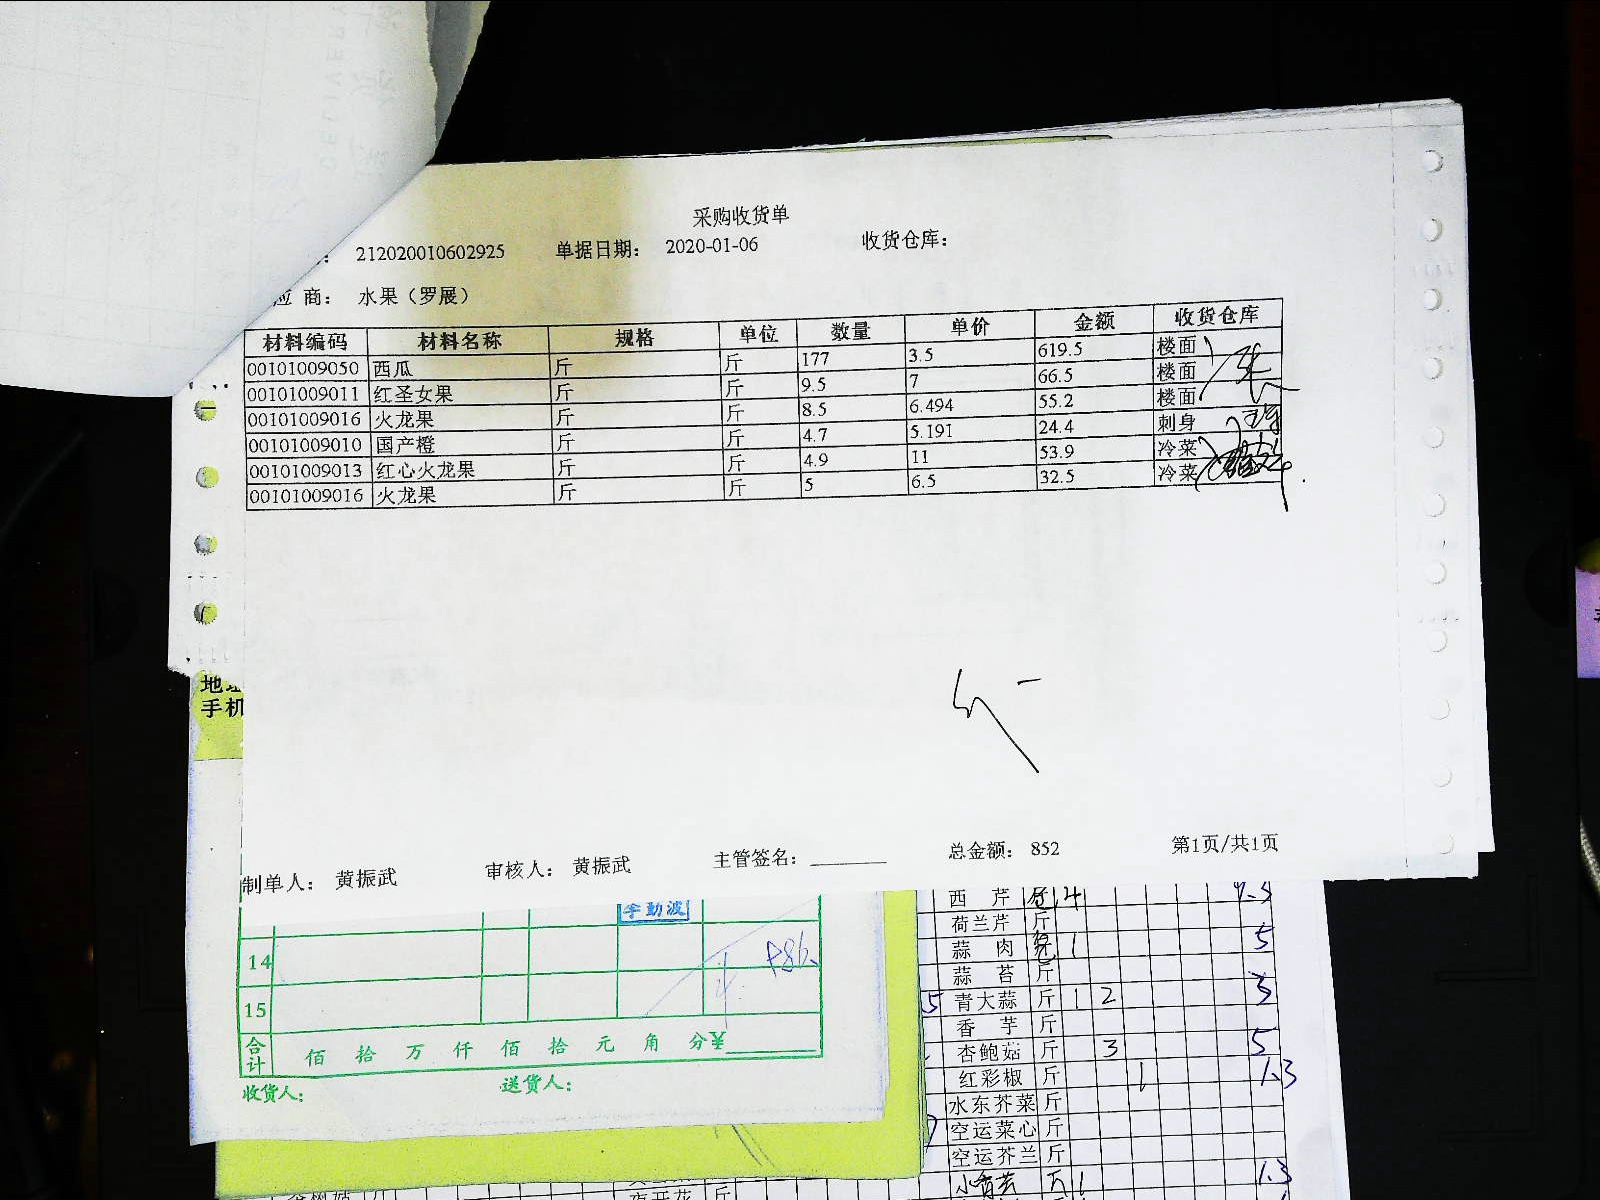 采购收货单
: 212020010602925 单据日期: 2020-01-06 收货仓库:
应 商: 水果(罗展)
材料编码 材料名称 规格 单位 数量 单价 金额 收货仓库
00101009050 西瓜 斤 斤 177 3.5 619.5 楼面
00101009011 红圣女果 斤 斤 9.5 7 66.5 楼面
00101009016 火龙果 斤 斤 8.5 6.494 55.2 楼面
00101009010 国产橙 斤 斤 4.7 5.191 24.4 刺身
00101009013 红心火龙果 斤 斤 4.9 11 53.9 冷菜
00101009016 火龙果 斤 斤 5 6.5 32.5 冷菜
制单人: 黄振武 审核人: 黄振武 主管签名: 总金额: 852 第1页/共1页
手机
李勤波
14
15
合计 佰 拾 万 仟 佰 拾 元 角 分¥
收货人: 送货人:
西 芹 4
荷兰芹 斤
蒜 肉 1 5
蒜 苔 斤
5 青大蒜 斤 1 2 3
香 芋 斤
杏鲍菇 斤 3 5
红彩椒 斤 1 1.3
水东芥菜 斤
空运菜心 斤
空运芥兰 斤
1.3